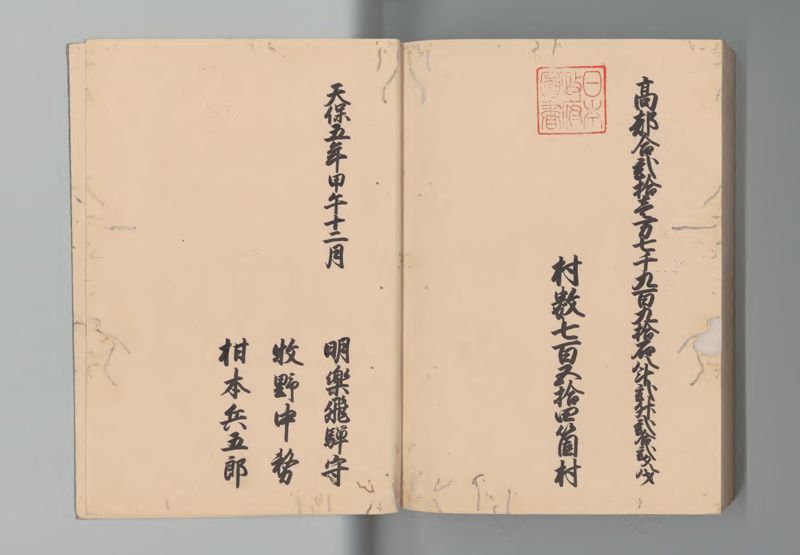 高都合弐拾壱万七千九百九拾石八斗弐升弐合弐勺
村数七百五拾四箇村
日本政府図書
天保五年甲午十二月
明楽飛騨守
牧野中務
柑本兵五郎